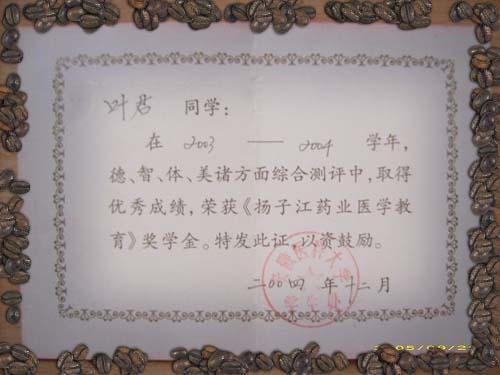 叶君 同学:
在 2003 —— 2004 学年,
德、智、体、美诸方面综合测评中,取得
优秀成绩,荣获《扬子江药业医学教
育》奖学金。特发此证,以资鼓励。
二〇〇四 年十二月